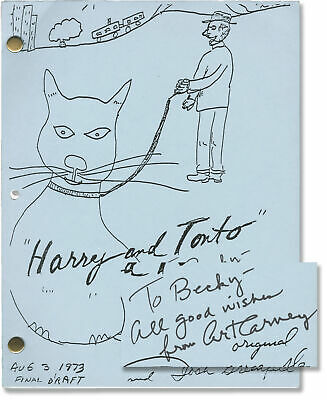 "Harry and Tonto"
a
To Becky—
All good wishes
from Art Carney
original
AUG 3 1973
FINAL DRAFT
and Josh